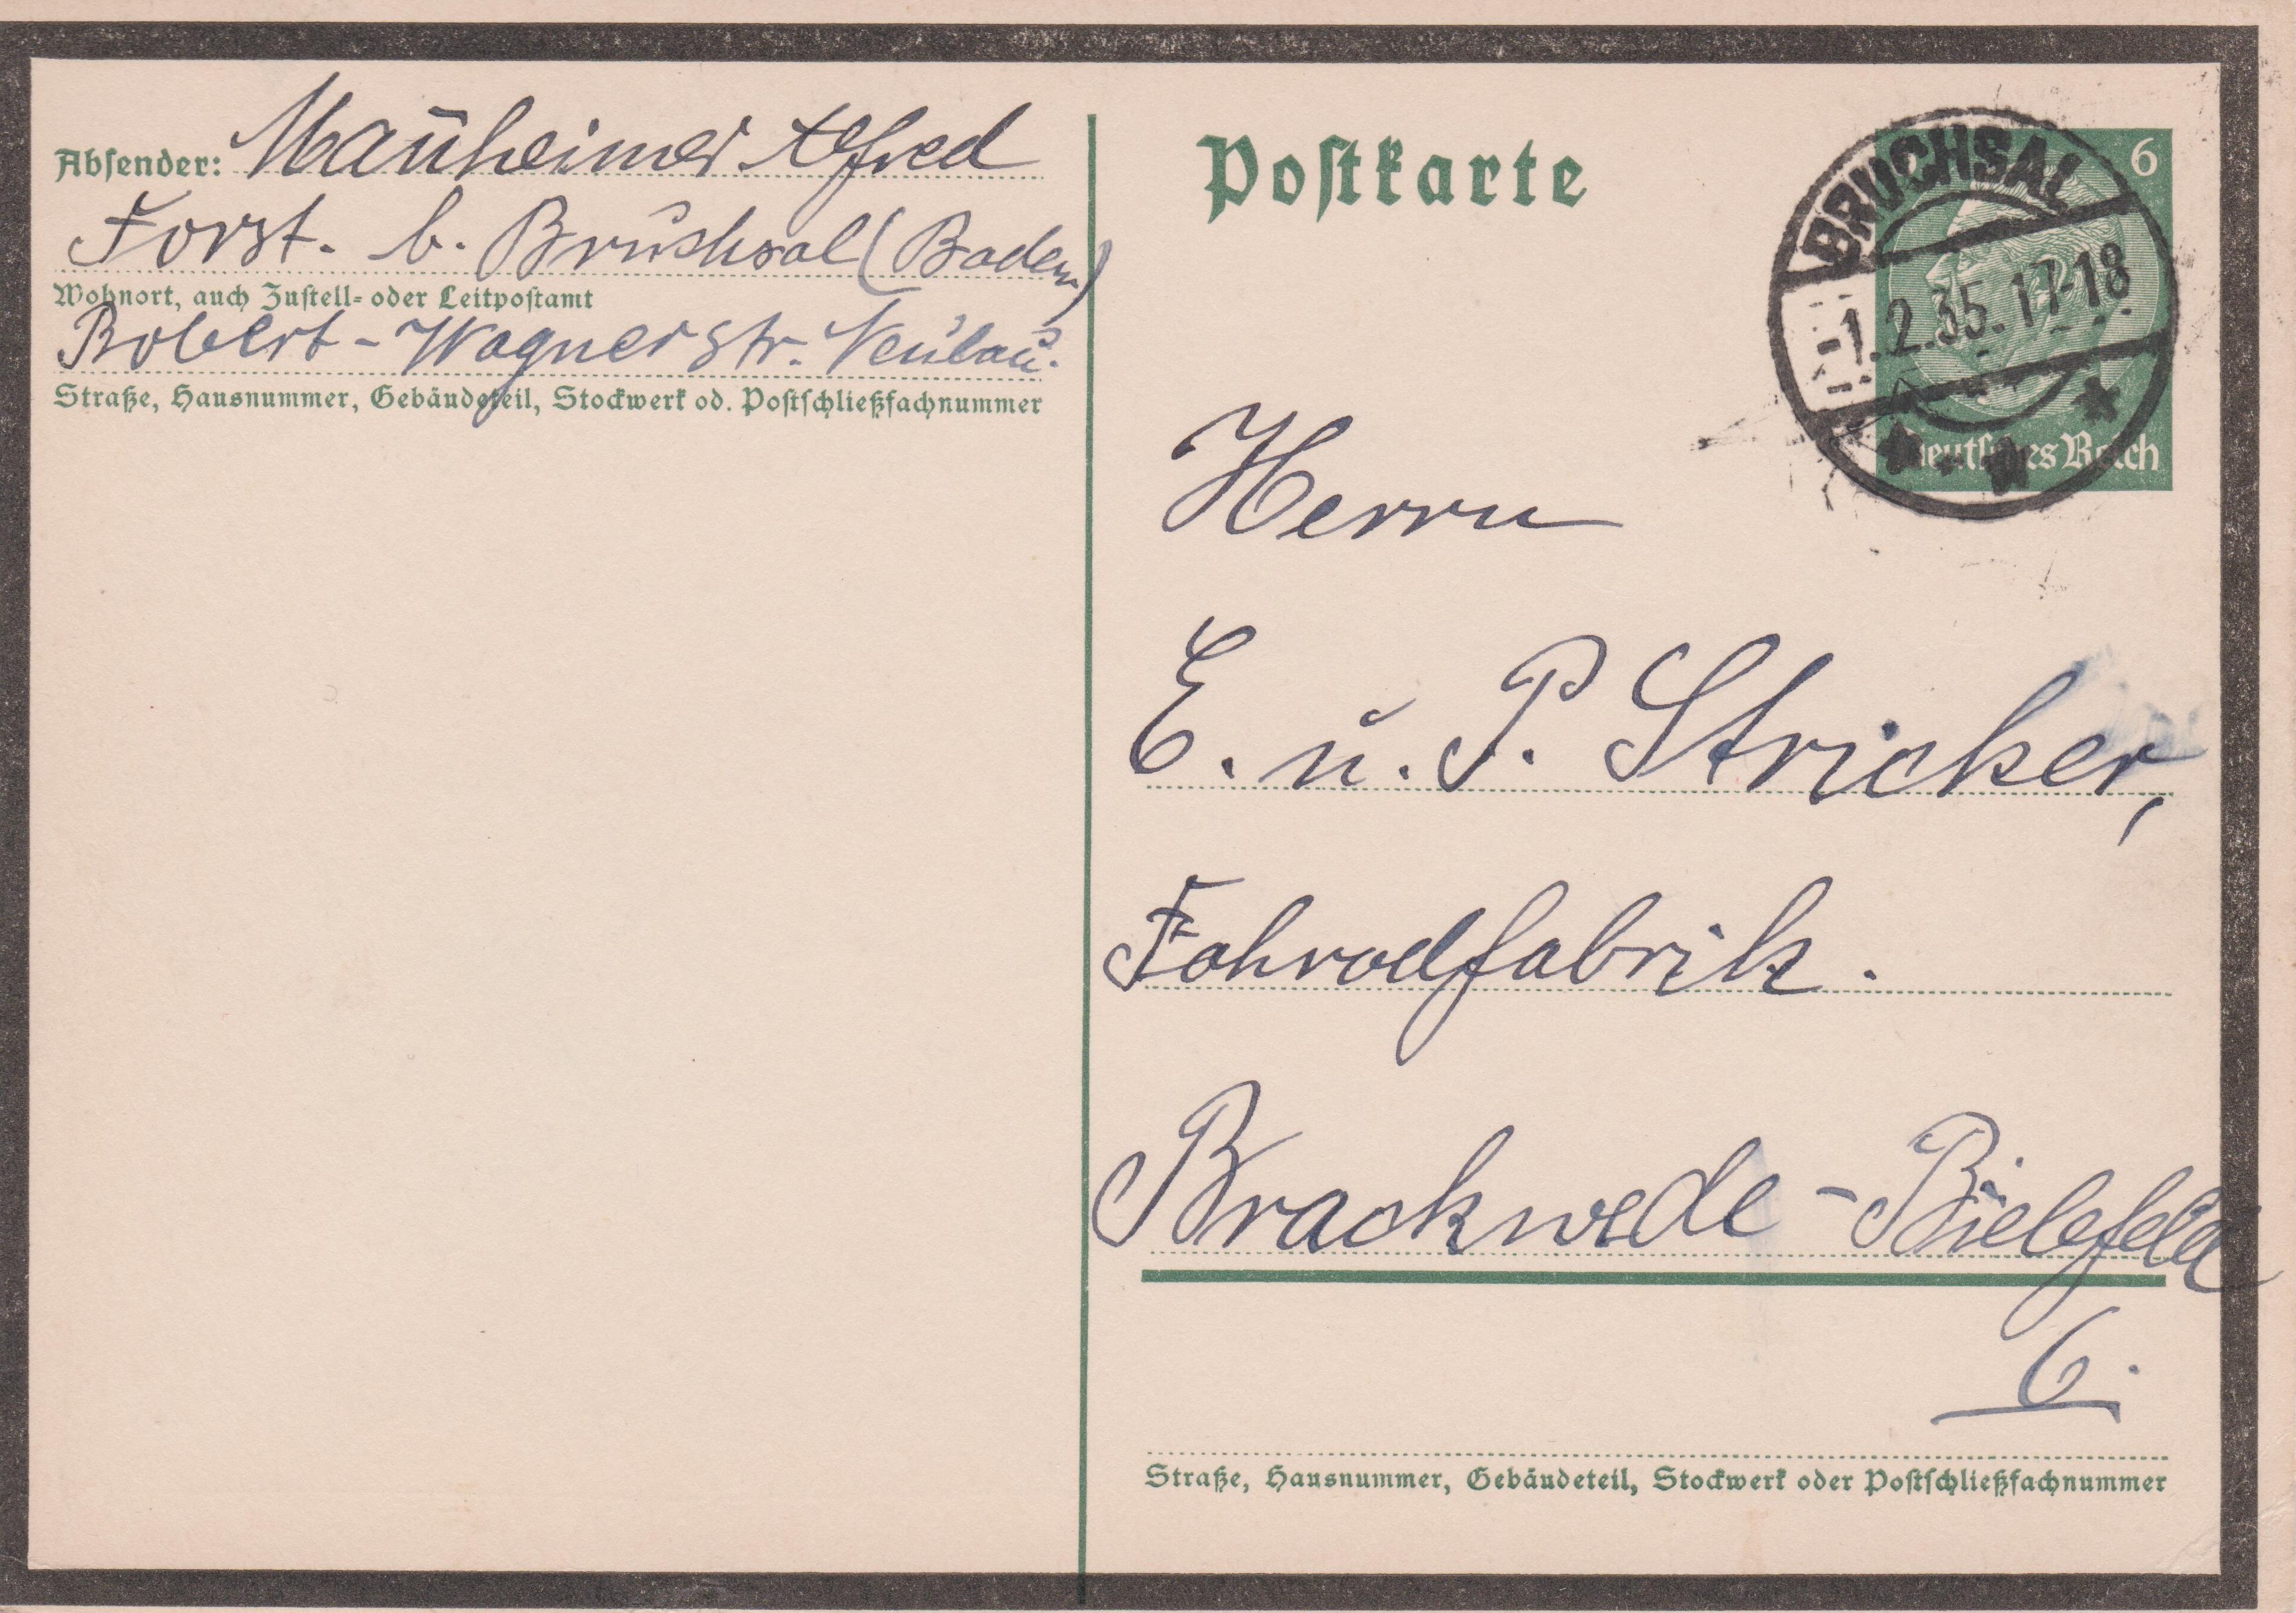 Absender: Mañheimer Alfred
Forst. b. Bruchsal (Baden)
Wohnort, auch Zustell- oder Leitpostamt
Robert-Wagnerstr. Neubau.
Straße, Hausnummer, Gebäudeteil, Stockwerk od. Postschließfachnummer
Postkarte
6
BRUCHSAL
-1.2.35.17-18
Deutsches Reich
Herrn
E. u. P. Stricker,
Fahrradfabrik.
Brackwede-Bielefeld
6.
Straße, Hausnummer, Gebäudeteil, Stockwerk oder Postschließfachnummer